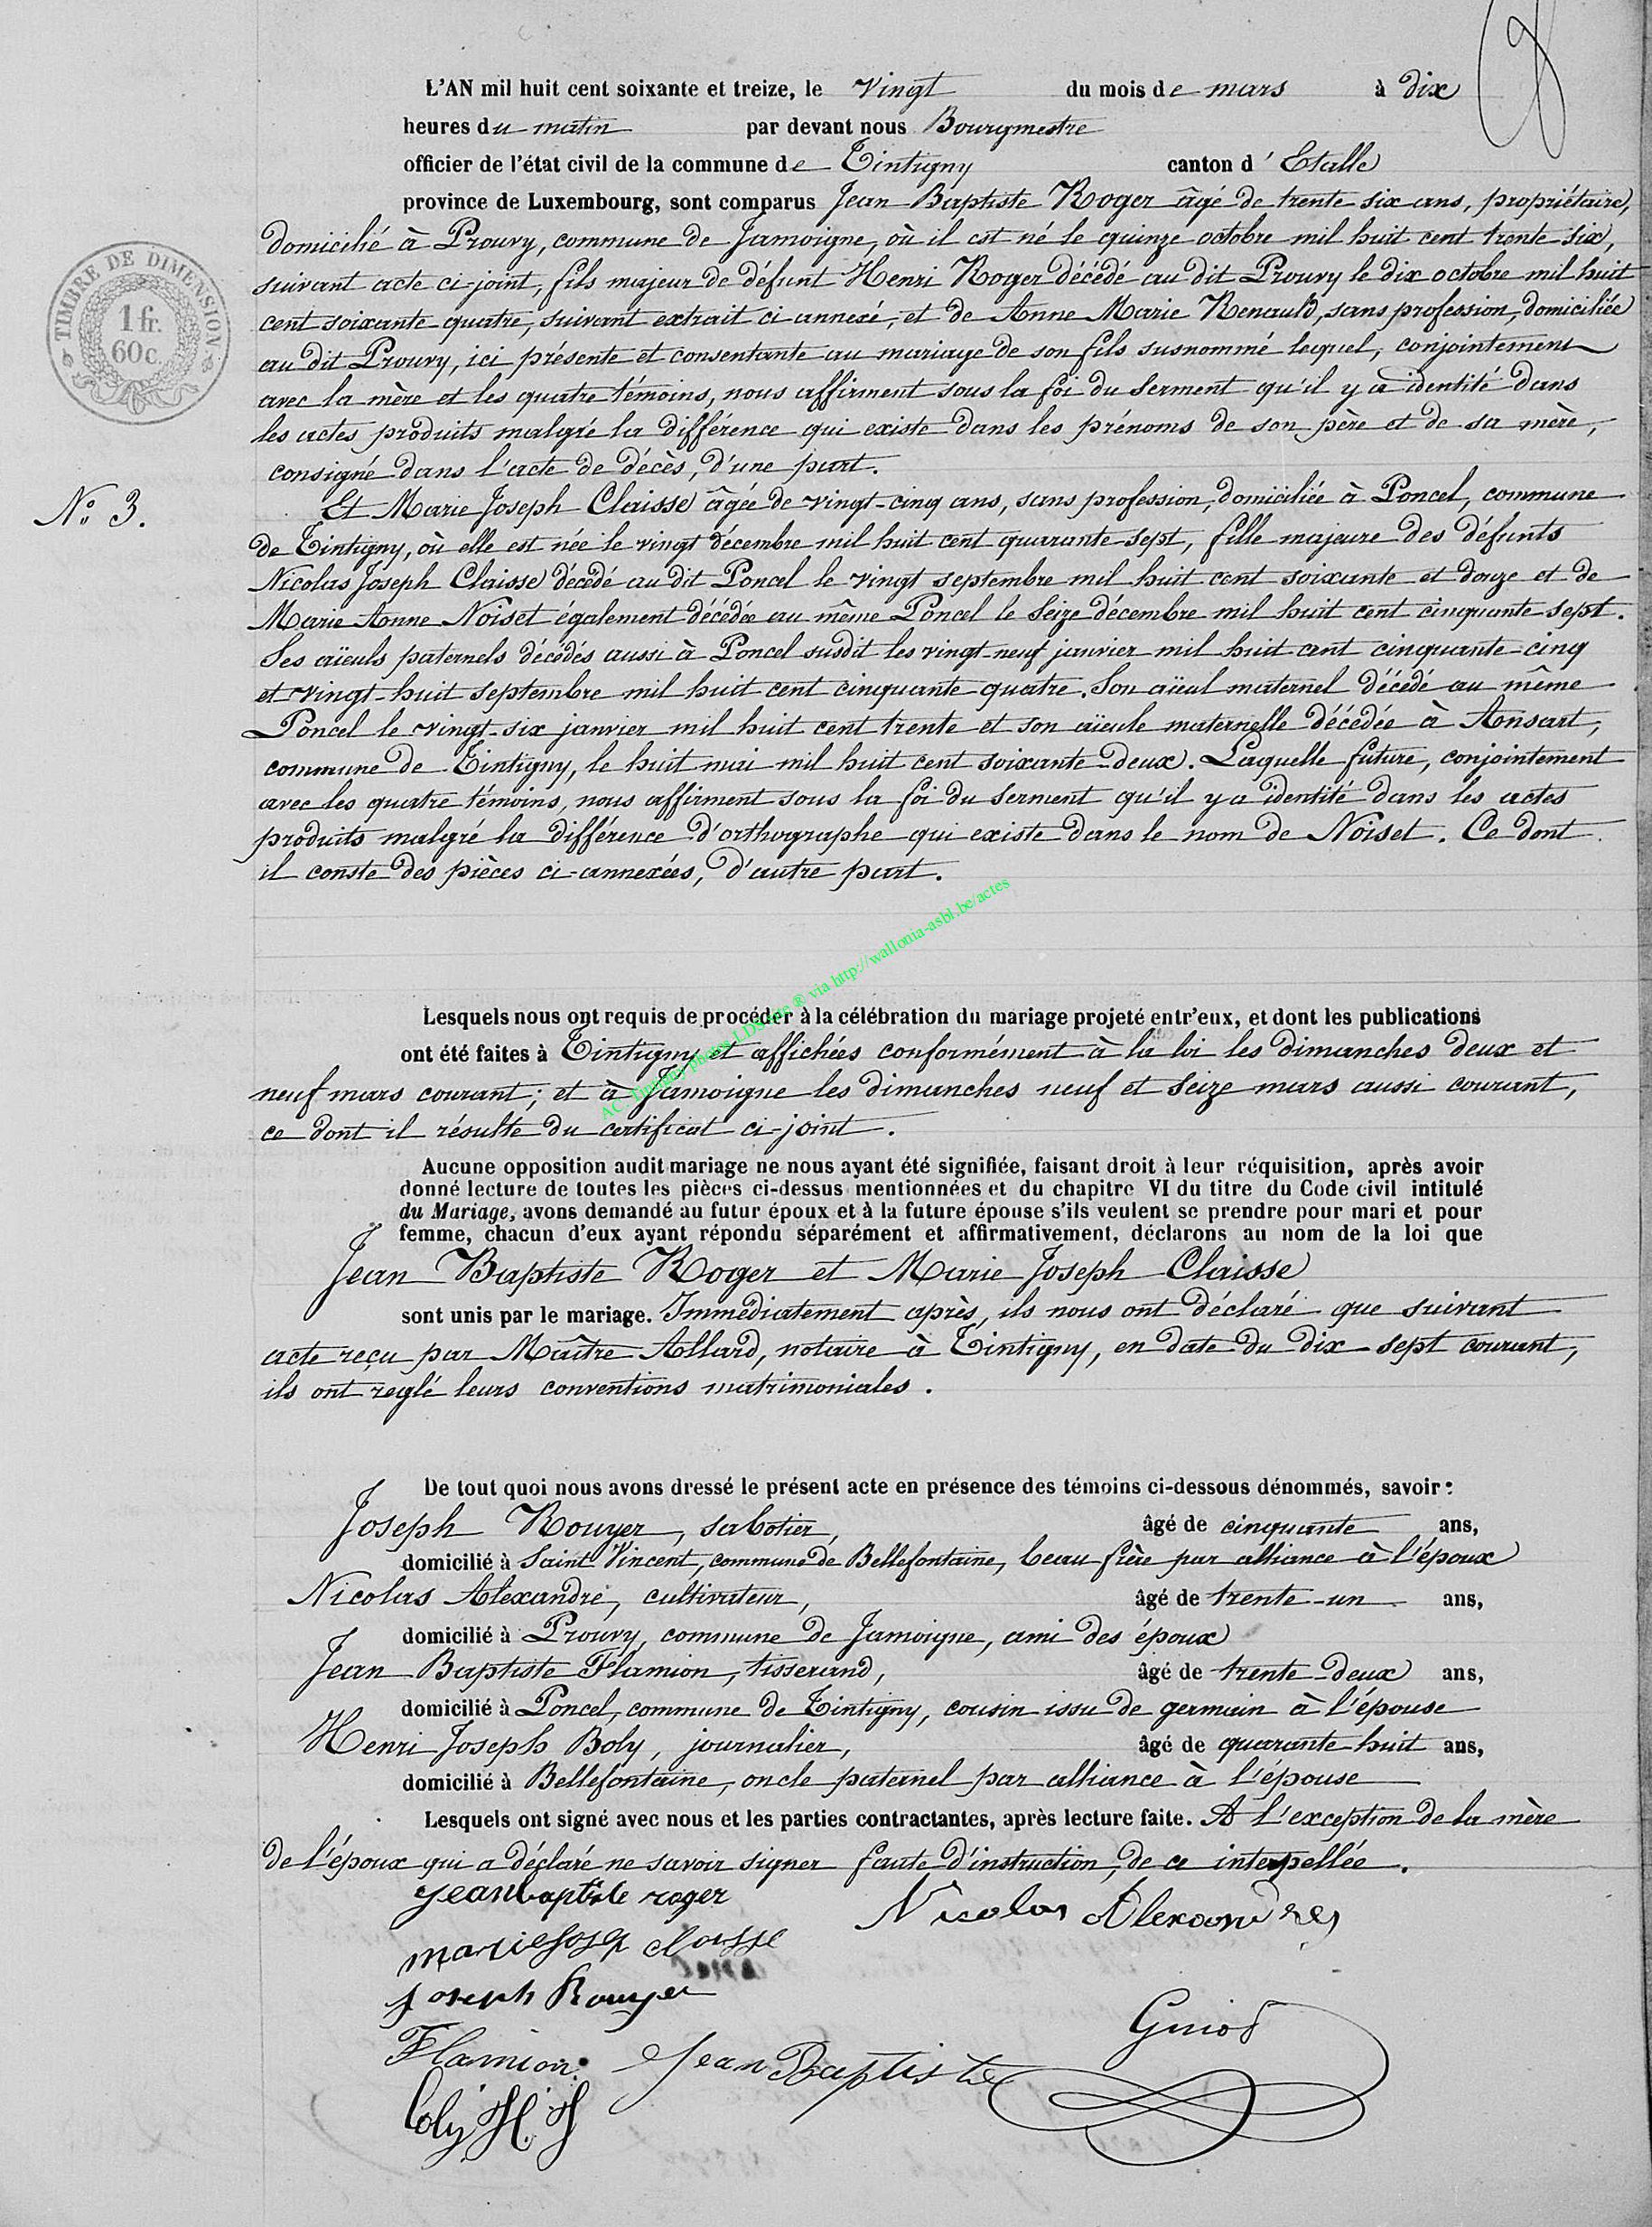 L'AN mil huit cent soixante et treize, le vingt du mois de mars à dix
heures du matin par devant nous Bourgmestre
officier de l'état civil de la commune de Tintigny canton d'Etalle
province de Luxembourg, sont comparus Jean Baptiste Roger âgé de trente six ans, propriétaire,
domicilié à Prouvy, commune de Jamoigne, où il est né le quinze octobre mil huit cent trente six,
suivant acte ci-joint, fils majeur de défunt Henri Roger décédé au dit Prouvy le dix octobre mil huit
cent soixante quatre, suivant extrait ci annexé, et de Anne Marie Renauld, sans profession, domiciliée
au dit Prouvy, ici présente et consentante au mariage de son fils susnommé lequel, conjointement
avec la mère et les quatre témoins, nous affirment sous la foi du serment qu'il y a identité dans
les actes produits malgré la différence qui existe dans les prénoms de son père et de sa mère,
consigné dans l'acte de décès, d'une part.
TIMBRE DE DIMENSION
1 fr.
60 c.
N° 3.
Et Marie Joseph Claisse âgée de vingt-cinq ans, sans profession, domiciliée à Poncel, commune
de Tintigny, où elle est née le vingt décembre mil huit cent quarante sept, fille majeure des défunts
Nicolas Joseph Claisse décédé au dit Poncel le vingt septembre mil huit cent soixante et douze et de
Marie Anne Noiset également décédée au même Poncel le seize décembre mil huit cent cinquante sept.
Ses aïeuls paternels décédés aussi à Poncel susdit les vingt-neuf janvier mil huit cent cinquante cinq
et vingt-huit septembre mil huit cent cinquante quatre. Son aïeul maternel décédé au même
Poncel le vingt-six janvier mil huit cent trente et son aïeule maternelle décédée à Ansart,
commune de Tintigny, le huit mai mil huit cent soixante-deux. Laquelle future, conjointement
avec les quatre témoins, nous affirment sous la foi du serment qu'il y a identité dans les actes
produits malgré la différence d'orthographe qui existe dans le nom de Noiset. Ce dont
il conste des pièces ci-annexées, d'autre part.
AC Tintigny photos LDS via http://wallonia-asbl.be/actes
Lesquels nous ont requis de procéder à la célébration du mariage projeté entr'eux, et dont les publications
ont été faites à Tintigny et affichées conformément à la loi les dimanches deux et
neuf mars courant; et à Jamoigne les dimanches neuf et seize mars aussi courant,
ce dont il résulte du certificat ci-joint.
Aucune opposition audit mariage ne nous ayant été signifiée, faisant droit à leur réquisition, après avoir
donné lecture de toutes les pièces ci-dessus mentionnées et du chapitre VI du titre du Code civil intitulé
du Mariage, avons demandé au futur époux et à la future épouse s'ils veulent se prendre pour mari et pour
femme, chacun d'eux ayant répondu séparément et affirmativement, déclarons au nom de la loi que
Jean Baptiste Roger et Marie Joseph Claisse
sont unis par le mariage. Immédiatement après, ils nous ont déclaré que suivant
acte reçu par Maître Allard, notaire à Tintigny, en date du dix-sept courant,
ils ont reglé leurs conventions matrimoniales.
De tout quoi nous avons dressé le présent acte en présence des témoins ci-dessous dénommés, savoir:
Joseph Rouyer, sabotier, âgé de cinquante ans,
domicilié à Saint Vincent, commune de Bellefontaine, beau frère par alliance à l'époux
Nicolas Alexandre, cultivateur, âgé de trente-un ans,
domicilié à Prouvy, commune de Jamoigne, ami des époux
Jean Baptiste Flamion, tisserand, âgé de trente-deux ans,
domicilié à Poncel, commune de Tintigny, cousin issu de germain à l'épouse
Henri Joseph Boly, journalier, âgé de quarante huit ans,
domicilié à Bellefontaine, oncle paternel par alliance à l'épouse
Lesquels ont signé avec nous et les parties contractantes, après lecture faite. A l'exception de la mère
de l'époux qui a déclaré ne savoir signer faute d'instruction, de ce interpellée.
jeanbaptiste roger
Nicolas Alexandre
marie josep claisse
joseph Rouyer
Guiot
Flamion Jean Baptiste
boly H. J